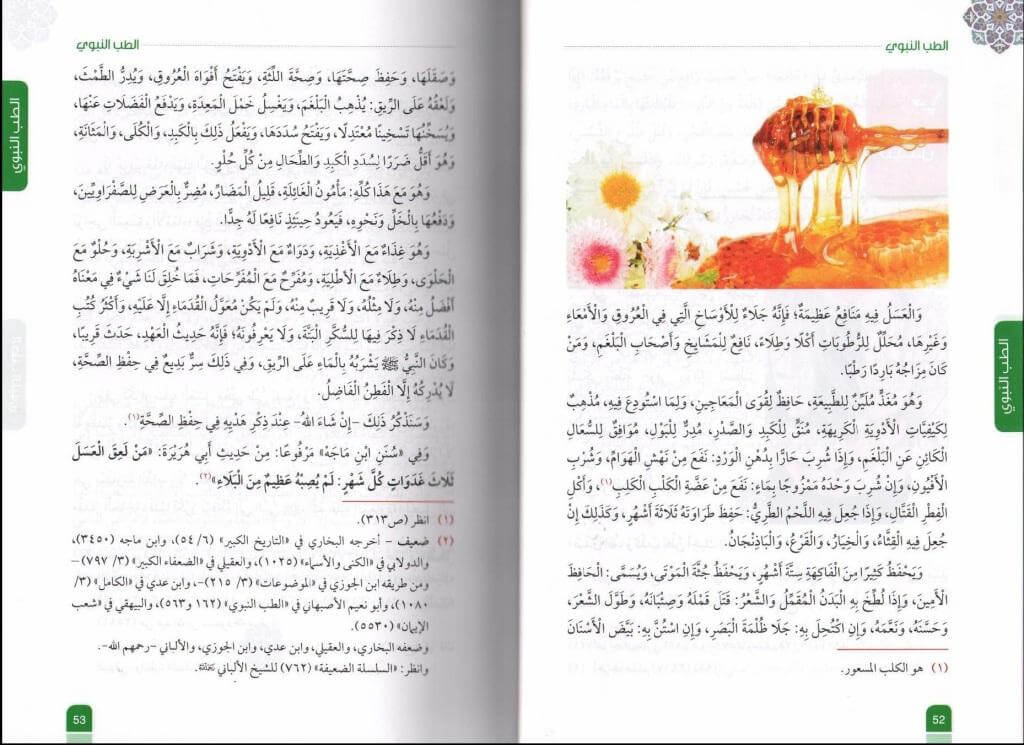 الطب النبوي
وَالْعَسَلُ فِيهِ مَنَافِعُ عَظِيمَةٌ؛ فَإِنَّهُ جَلَاءٌ لِلْأَوْسَاخِ الَّتِي فِي الْعُرُوقِ وَالْأَمْعَاءِ
وَغَيْرِهَا، مُحَلِّلٌ لِلرُّطُوبَاتِ أَكْلًا وَطِلَاءً، نَافِعٌ لِلْمَشَايِخِ وَأَصْحَابِ الْبَلْغَمِ، وَمَنْ
كَانَ مِزَاجُهُ بَارِدًا رَطْبًا.
وَهُوَ مُغَذٍّ مُلَيِّنٌ لِلطَّبِيعَةِ، حَافِظٌ لِقُوَى الْمَعَاجِينِ، وَلِمَا اسْتُودِعَ فِيهِ، مُذْهِبٌ
لِكَيْفِيَّاتِ الْأَدْوِيَةِ الْكَرِيهَةِ، مُنَقٍّ لِلْكَبِدِ وَالصَّدْرِ، مُدِرٌّ لِلْبَوْلِ، مُوَافِقٌ لِلسُّعَالِ
الْكَائِنِ عَنِ الْبَلْغَمِ، وَإِذَا شُرِبَ حَارًّا بِدُهْنِ الْوَرْدِ: نَفَعَ مِنْ نَهْشِ الْهَوَامِّ، وَشُرْبِ
الْأَفْيُونِ، وَإِنْ شُرِبَ وَحْدَهُ مَمْزُوجًا بِمَاءٍ: نَفَعَ مِنْ عَضَّةِ الْكَلْبِ الْكَلِبِ(١)، وَأَكْلِ
الْفُطُرِ الْقَتَّالِ، وَإِذَا جُعِلَ فِيهِ اللَّحْمُ الطَّرِيُّ: حَفِظَ طَرَاوَتَهُ ثَلَاثَةَ أَشْهُرٍ، وَكَذَلِكَ إِنْ
جُعِلَ فِيهِ الْقِثَّاءُ، وَالْخِيَارُ، وَالْقَرْعُ، وَالْبَاذِنْجَانُ.
وَيَحْفَظُ كَثِيرًا مِنَ الْفَاكِهَةِ سِتَّةَ أَشْهُرٍ، وَيَحْفَظُ جُثَّةَ الْمَوْتَى، وَيُسَمَّى: الْحَافِظَ
الْأَمِينَ، وَإِذَا لُطِّخَ بِهِ الْبَدَنُ الْمُقَمَّلُ وَالشَّعْرُ: قَتَلَ قَمْلَهُ وَصِئْبَانَهُ، وَطَوَّلَ الشَّعْرَ،
وَحَسَّنَهُ، وَنَعَّمَهُ، وَإِنِ اكْتُحِلَ بِهِ: جَلَا ظُلْمَةَ الْبَصَرِ، وَإِنِ اسْتُنَّ بِهِ: بَيَّضَ الْأَسْنَانَ
(١) هو الكلب المسعور.
52
الطب النبوي
الطب النبوي
وَصَقَلَهَا، وَحَفِظَ صِحَّتَهَا، وَصِحَّةَ اللِّثَةِ، وَيَفْتَحُ أَفْوَاهَ الْعُرُوقِ، وَيُدِرُّ الطَّمْثَ،
وَلَعْقُهُ عَلَى الرِّيقِ: يُذْهِبُ الْبَلْغَمَ، وَيَغْسِلُ خَمْلَ الْمَعِدَةِ، وَيَدْفَعُ الْفَضَلَاتِ عَنْهَا،
وَيُسَخِّنُهَا تَسْخِينًا مُعْتَدِلًا، وَيَفْتَحُ سُدَدَهَا، وَيَفْعَلُ ذَلِكَ بِالْكَبِدِ، وَالْكُلَى، وَالْمَثَانَةِ،
وَهُوَ أَقَلُّ ضَرَرًا لِسُدَدِ الْكَبِدِ وَالطِّحَالِ مِنْ كُلِّ حُلْوٍ.
وَهُوَ مَعَ هَذَا كُلِّهِ: مَأْمُونُ الْغَائِلَةِ، قَلِيلُ الْمَضَارِّ، مُضِرٌّ بِالْعَرَضِ لِلصَّفْرَاوِيِّينَ،
وَدَفْعُهَا بِالْخَلِّ وَنَحْوِهِ، فَيَعُودُ حِينَئِذٍ نَافِعًا لَهُ جِدًّا.
وَهُوَ غِذَاءٌ مَعَ الْأَغْذِيَةِ، وَدَوَاءٌ مَعَ الْأَدْوِيَةِ، وَشَرَابٌ مَعَ الْأَشْرِبَةِ، وَحُلْوٌ مَعَ
الْحَلْوَى، وَطِلَاءٌ مَعَ الْأَطْلِيَةِ، وَمُفَرِّحٌ مَعَ الْمُفَرِّحَاتِ، فَمَا خُلِقَ لَنَا شَيْءٌ فِي مَعْنَاهُ
أَفْضَلُ مِنْهُ، وَلَا مِثْلُهُ، وَلَا قَرِيبٌ مِنْهُ، وَلَمْ يَكُنْ مُعَوَّلُ الْقُدَمَاءِ إِلَّا عَلَيْهِ، وَأَكْثَرُ كُتُبِ
الْقُدَمَاءِ لَا ذِكْرَ فِيهَا لِلسُّكَّرِ الْبَتَّةَ، وَلَا يَعْرِفُونَهُ؛ فَإِنَّهُ حَدِيثُ الْعَهْدِ، حَدَثَ قَرِيبًا،
وَكَانَ النَّبِيُّ ﷺ يَشْرَبُهُ بِالْمَاءِ عَلَى الرِّيقِ، وَفِي ذَلِكَ سِرٌّ بَدِيعٌ فِي حِفْظِ الصِّحَّةِ،
لَا يُدْرِكُهُ إِلَّا الْفَطِنُ الْفَاضِلُ.
وَسَنَذْكُرُ ذَلِكَ -إِنْ شَاءَ اللهُ- عِنْدَ ذِكْرِ هَدْيِهِ فِي حِفْظِ الصِّحَّةِ(١).
وَفِي «سُنَنِ ابْنِ مَاجَهْ» مَرْفُوعًا: مِنْ حَدِيثِ أَبِي هُرَيْرَةَ: «مَنْ لَعِقَ الْعَسَلَ
ثَلَاثَ غَدَوَاتٍ كُلَّ شَهْرٍ: لَمْ يُصِبْهُ عَظِيمٌ مِنَ الْبَلَاءِ»(٢).
(١) انظر (ص٣١٣).
(٢) ضعيف - أخرجه البخاري في «التاريخ الكبير» (٦/ ٥٤)، وابن ماجه (٣٤٥٠)،
والدولابي في «الكنى والأسماء» (١٠٢٥)، والعقيلي في «الضعفاء الكبير» (٣/ ٧٩٧)-
ومن طريقه ابن الجوزي في «الموضوعات» (٣/ ٢١٥)-، وابن عدي في «الكامل» (٣/
١٠٨٠)، وأبو نعيم الأصبهاني في «الطب النبوي» (١٦٢ و٥٦٣)، والبيهقي في «شعب
الإيمان» (٥٥٣٠).
وضعفه البخاري، والعقيلي، وابن عدي، وابن الجوزي، والألباني -رحمهم الله-.
وانظر: «السلسلة الضعيفة» (٧٦٢) للشيخ الألباني رحمه الله.
53
الطب النبوي